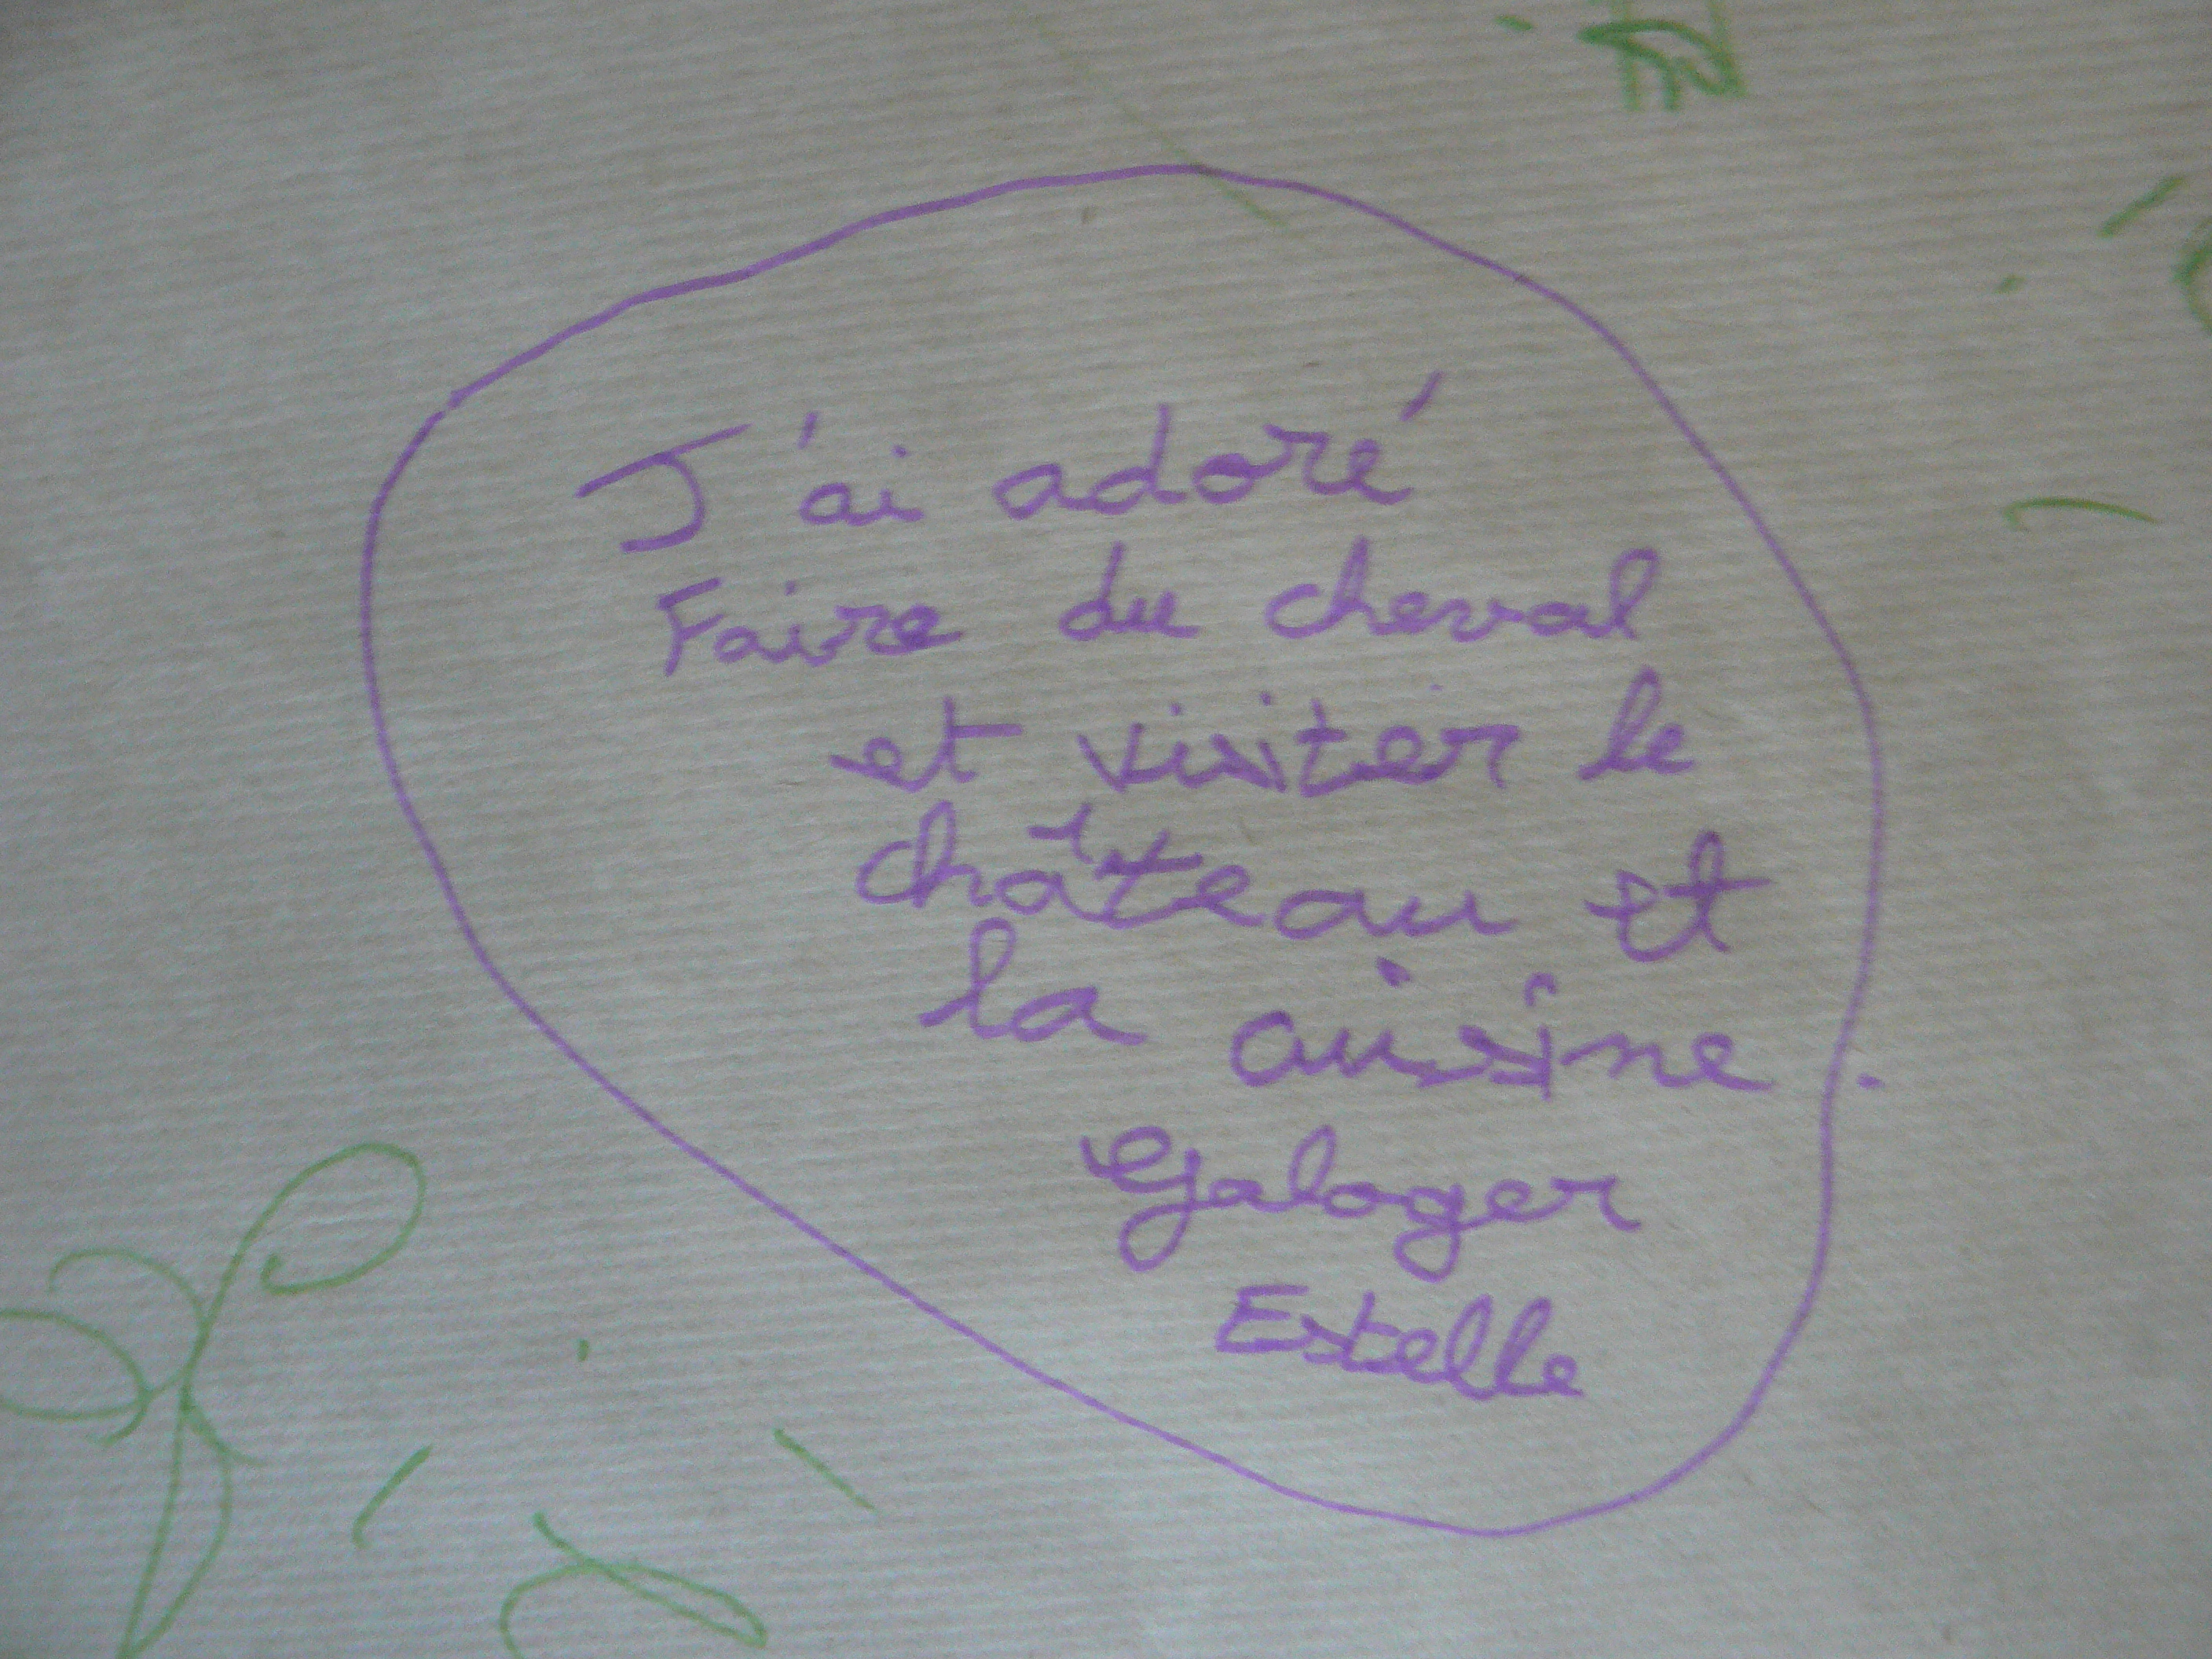 J'ai adoré
Faire du cheval
et visiter le
château et
la cuisine.
Galoger
Estelle